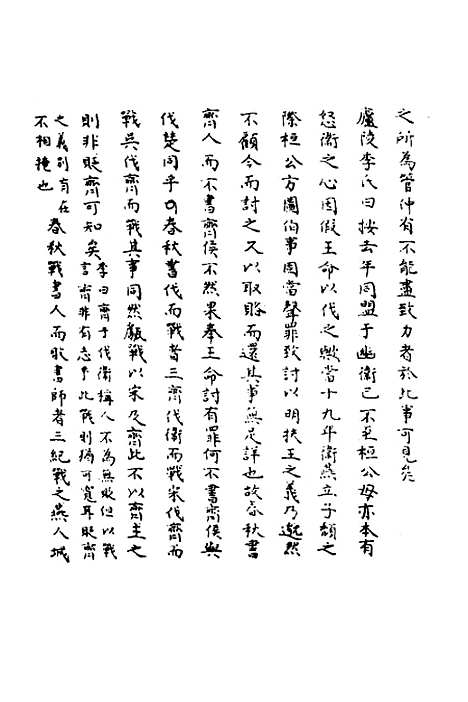 之所為管仲有不能盡致力者於此事可見矣
廬陵李氏曰按去年同盟于幽衛已不至桓公毋亦本有
怒衛之心因假王命以伐之歟當十九年衛燕立子頹之
際桓公方圖伯事固當聲罪致討以明扶王之義乃邈然
不顧今而討之又以取賂而還其事無足詳也故春秋書
齊人而不書齊侯不然果奉王命討有罪何不書齊侯與
伐楚同乎〇春秋書伐而戰者三齊伐衛而戰宋伐齊而
戰吳伐齊而戰其事同然甗戰以宋及齊此不以齊主之
則非貶齊可知矣
李曰齊予伐衛稱人不為無貶但以戰
言齊非有志乎此戰則猶可寬耳貶齊
之義則自在
不相掩也
春秋戰書人而敗書師者三紀戰之燕人城